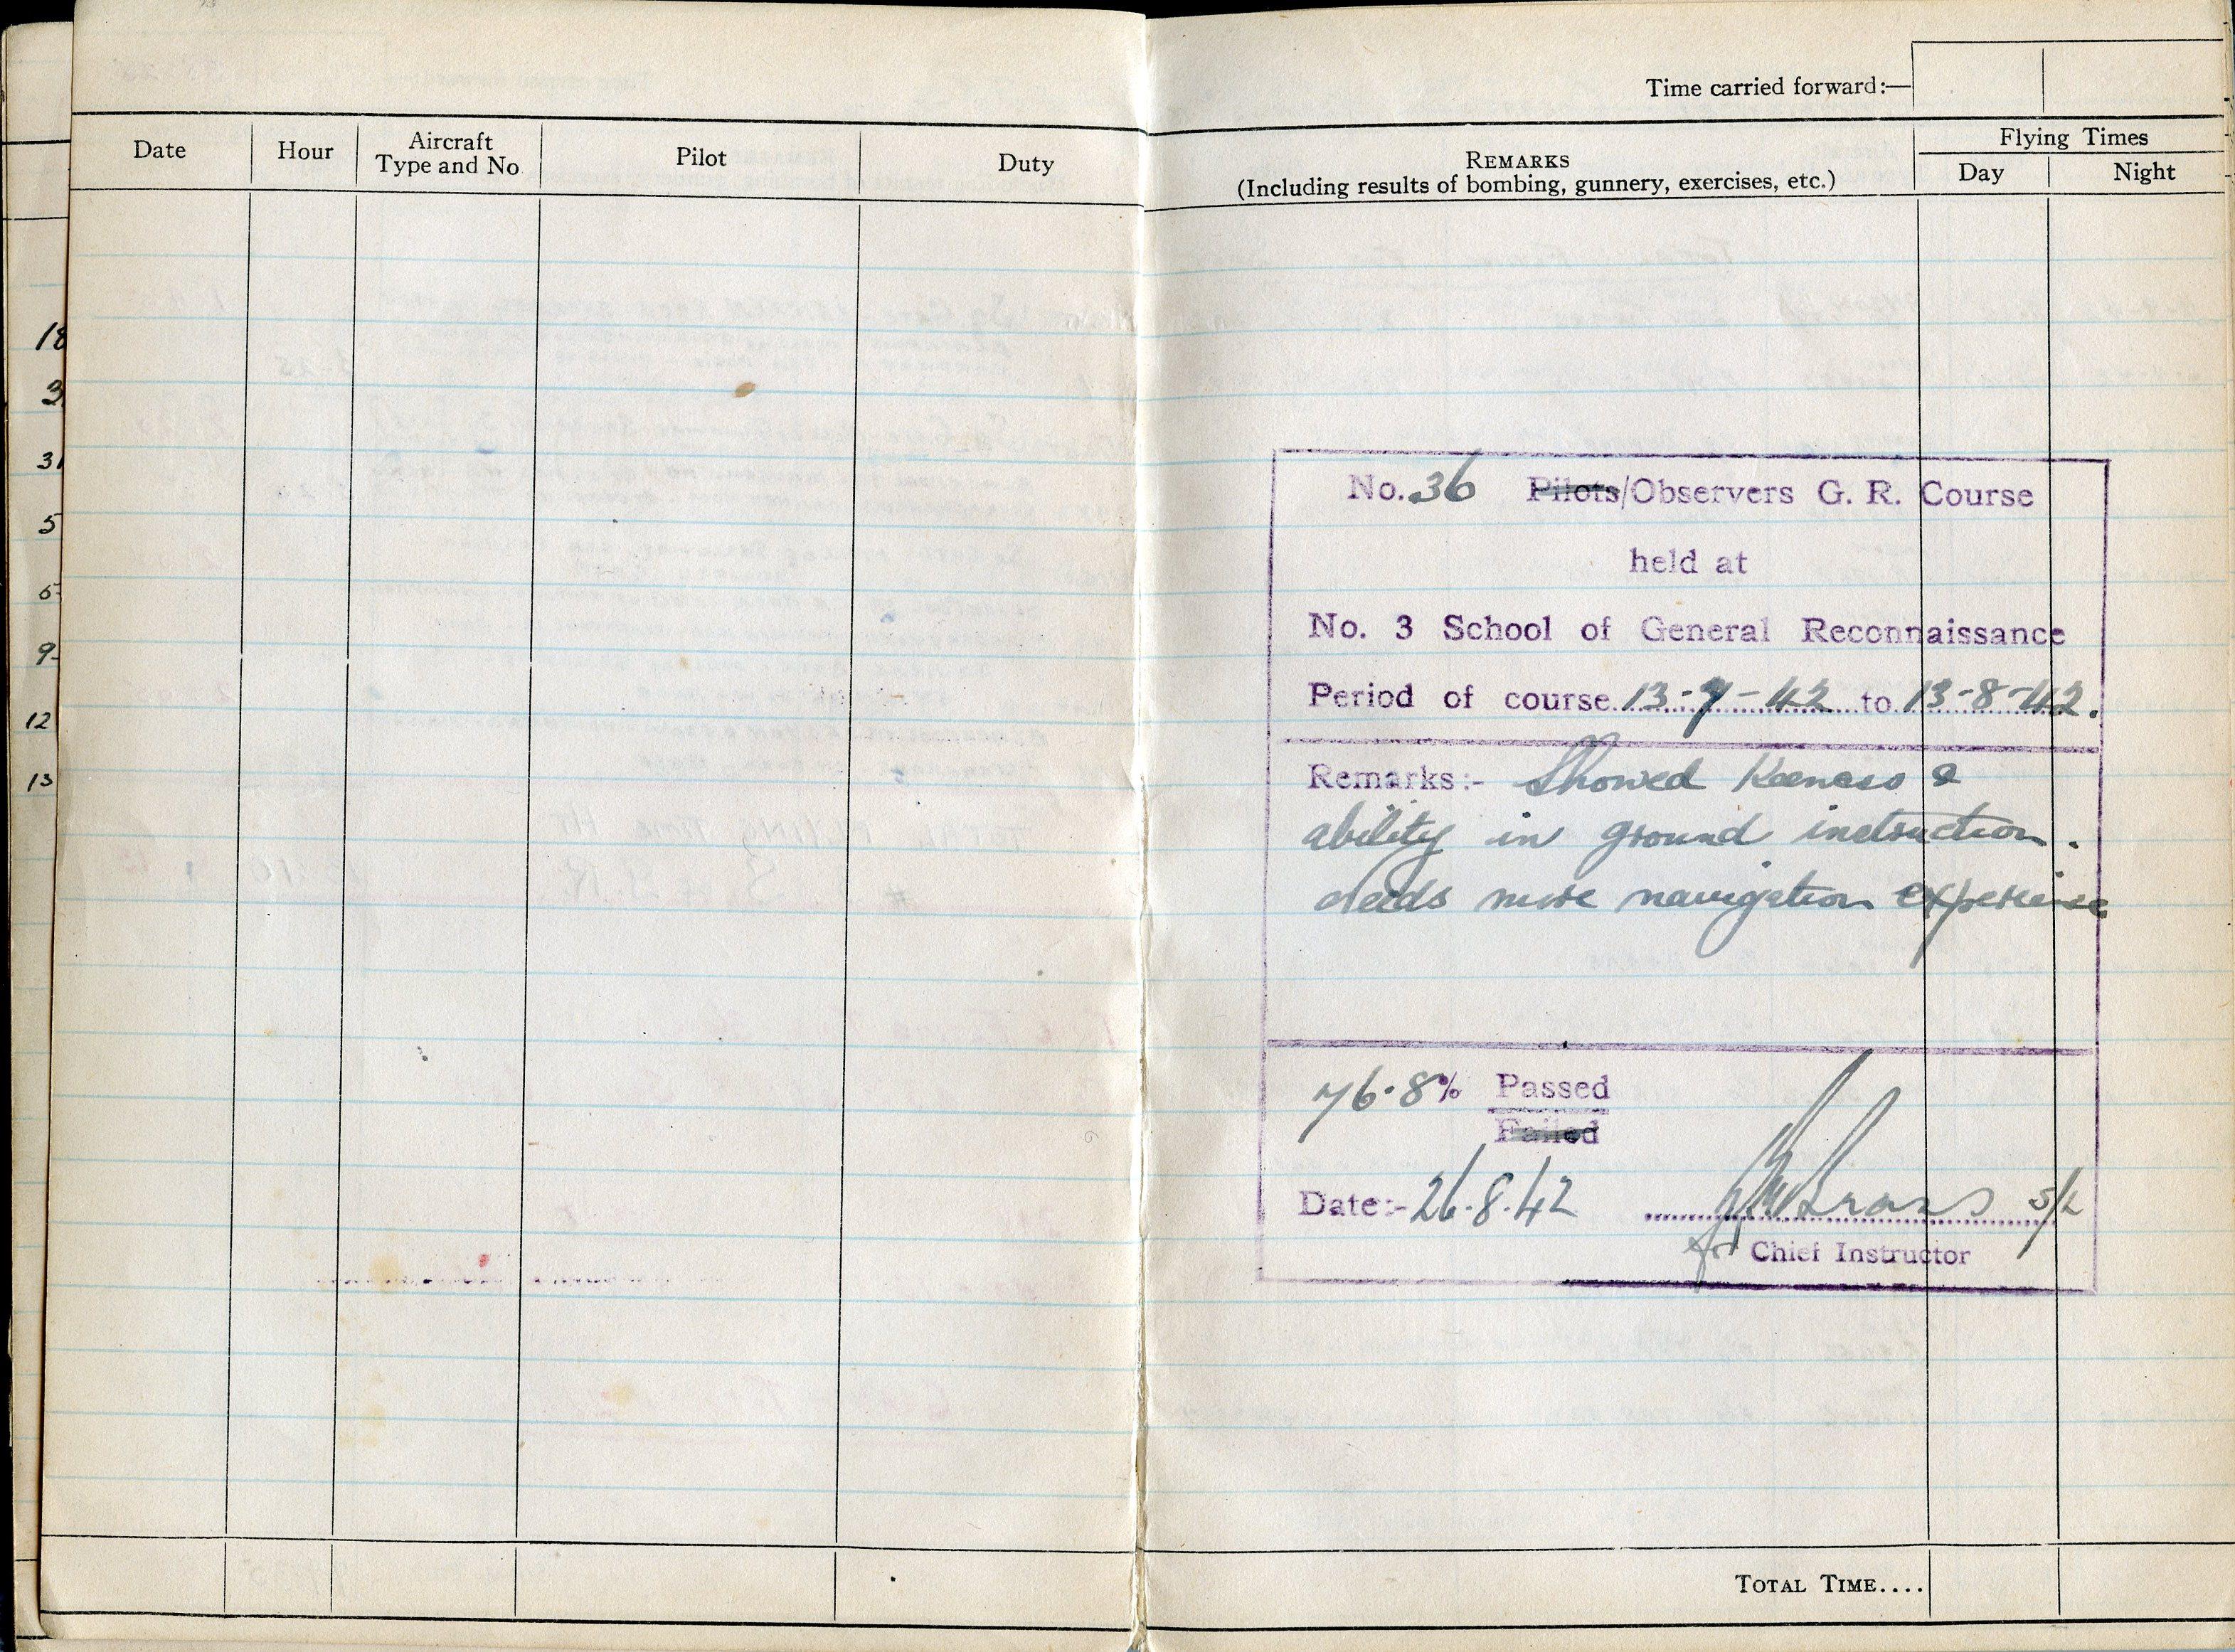 Time carried forward:—
Date Hour Aircraft Type and No Pilot Duty
REMARKS
(Including results of bombing, gunnery, exercises, etc.)
Flying Times
Day Night
18
3
31
5
6
9
12
13
No. 36 Pilots/Observers G. R. Course
held at
No. 3 School of General Reconnaissance
Period of course 13-7-42 to 13-8-42.
Remarks:- Showed Keeness &
ability in ground instruction.
Needs more navigation experience
76.8% Passed
Failed
Date:- 26.8.42 S/L
for Chief Instructor
TOTAL TIME....